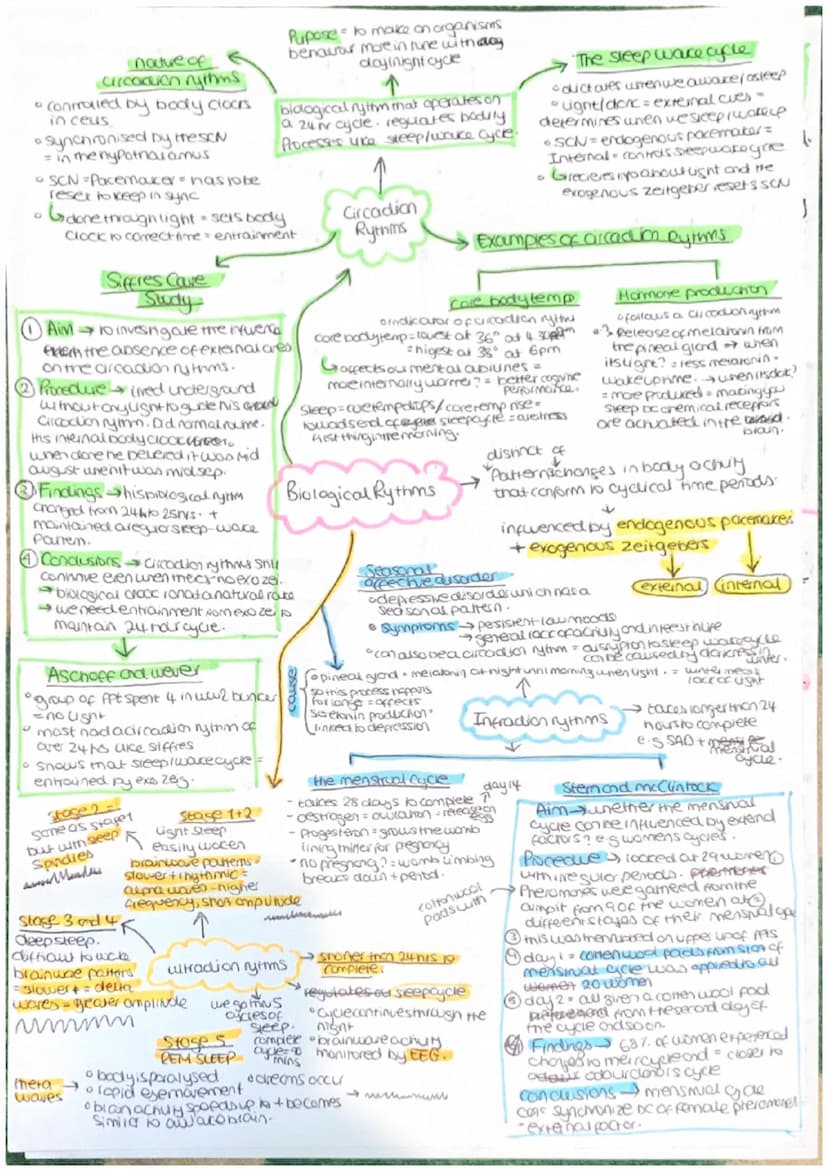 Pupose = to make an organisms
behaviour more in tune with day
day/night cycle
nature of
circadian rythms
° controlled by body clocks
in cells
° synchronised by the SCN
= in the hypothalamus
° SCN = Pacemaker = has to be
reset to keep in sync
° done through light = sets body
clock to correct time = entrainment
biological rythm that operates on
a 24 hr cycle. regulates bodily
Processes like sleep/wake cycle.
The sleep wake cycle
° dictates when we awake/asleep
° light/dark = external cues =
determines when we sleep/wakeup
° SCN = endogenous pacemaker =
Internal = controls sleep wake cycle
° recieves info about light and the
exogenous zeitgeber resets SCN
Circadian
Rythms
Siffres Cave
Study
① Aim → to investigate the influence
the absence of external cues
on the circadian rythms.
② Procedure → lived underground
without any light to guide his
Circadian rythm. Did normal routine.
His internal body clock
when done he believed it was mid
august when it was mid sep.
③ Findings → his biological rythm
changed from 24h to 25hrs. +
maintained a regular sleep-wake
Pattern.
④ Conclusions → Circadian rythms still
continue even when there's no exo zei.
→ biological clock is on at a natural rate
→ we need entrainment from exo zei to
maintain 24 hour cycle.
Aschoff and wever
° group of PPT spent 4 in ww2 bunker
= no light
° most had a circadian rythm of
over 24 hrs like siffres
° shows that sleep/wake cycle =
entrained by exo zeig.
Examples of circadian Rythms
Core body temp
° indicator of circadian rythm
core body temp = lowest at 36° at 4:30am
= higest at 38° at 6pm
affects our mental abilities =
more internally warmer? = better cognitive
performance.
Sleep = core temp drops / core temp rise =
toward send of sleep cycle = alertness
first thing in the morning.
Hormone production
° follows a circadian rythm
→ Release of melatonin from
the pineal gland → when
its light? = less melatonin =
wakeup time. → when its dark?
= more produced = making you
sleep bc chemical receptors
are activated in the
brain.
Biological Rythms
distinct of
Patterns changes in body activity
that conform to cyclical time periods.
influenced by endogenous pacemakers
+ exogenous zeitgebers
external
internal
Seasonal
affective disorder
° depressive disorder which has a
seasonal pattern.
° symptoms → persistent low moods
→ general lack of activity and interest in life
° can also be a circadian rythm = disruption to sleep wake cycle
can be caused by darkness in
winter.
cause
° pineal gland = melatonin at night until morning when light. = winter means
lack of light
so this process happens
for longer = affects
serotonin production =
linked to depression
Infradian rythms
→ takes longer than 24
hours to complete
e.g SAD + menstrual
cycle.
the menstrual cycle
day 14
- takes 28 days to complete
- oestrogen = ovulation = releases
egg
- progesteron = grows the womb
lining thicker for pregnancy
- no pregnancy? = womb lining
breaks down + period.
Stern and mcClintock
Aim → whether the menstrual
cycle can be influenced by external
factors? e.g womens cycles.
Procedure → looked at 29 women ①
with irregular periods.
cotton wool
pads with
Pheromones were gathered from the
armpit from 9 of the women at ②
different stages of their menstrual
③ this was then rubbed on upper lip of PPTS
④ day 1 = cotton wool pads from start of
menstrual cycle was applied to all
20 women
⑤ day 2 = all given a cotton wool pad
from the second day of
the cycle and so on.
Findings → 68% of women experienced
changes to their cycle and = closer to
odour donor's cycle
conclusions → menstrual cycle
can synchronize bc of female pheromones
- external factor.
Stage 2 -
same as stage 1
but with sleep
spindles
Stage 1+2
light sleep
easily woken
brainwave patterns =
slower + rhythmic =
alpha waves - higher
frequency, short amplitude
Stage 3 and 4
deep sleep.
difficult to wake
brainwave patterns
= slower + = delta
waves = greater amplitude
ultradian rythms
→ shorter than 24 hrs to
complete.
→ regulates our sleep cycle
° cycle continues through the
night
° brainwave activity
monitored by EEG.
we go thru 5
cycles of
sleep.
complete
cycle = 90
mins
Stage 5
REM SLEEP
theta
waves
° body is paralysed
° rapid eye movement
° brain activity speeds up to + becomes
similar to awake brain.
° dreams occur